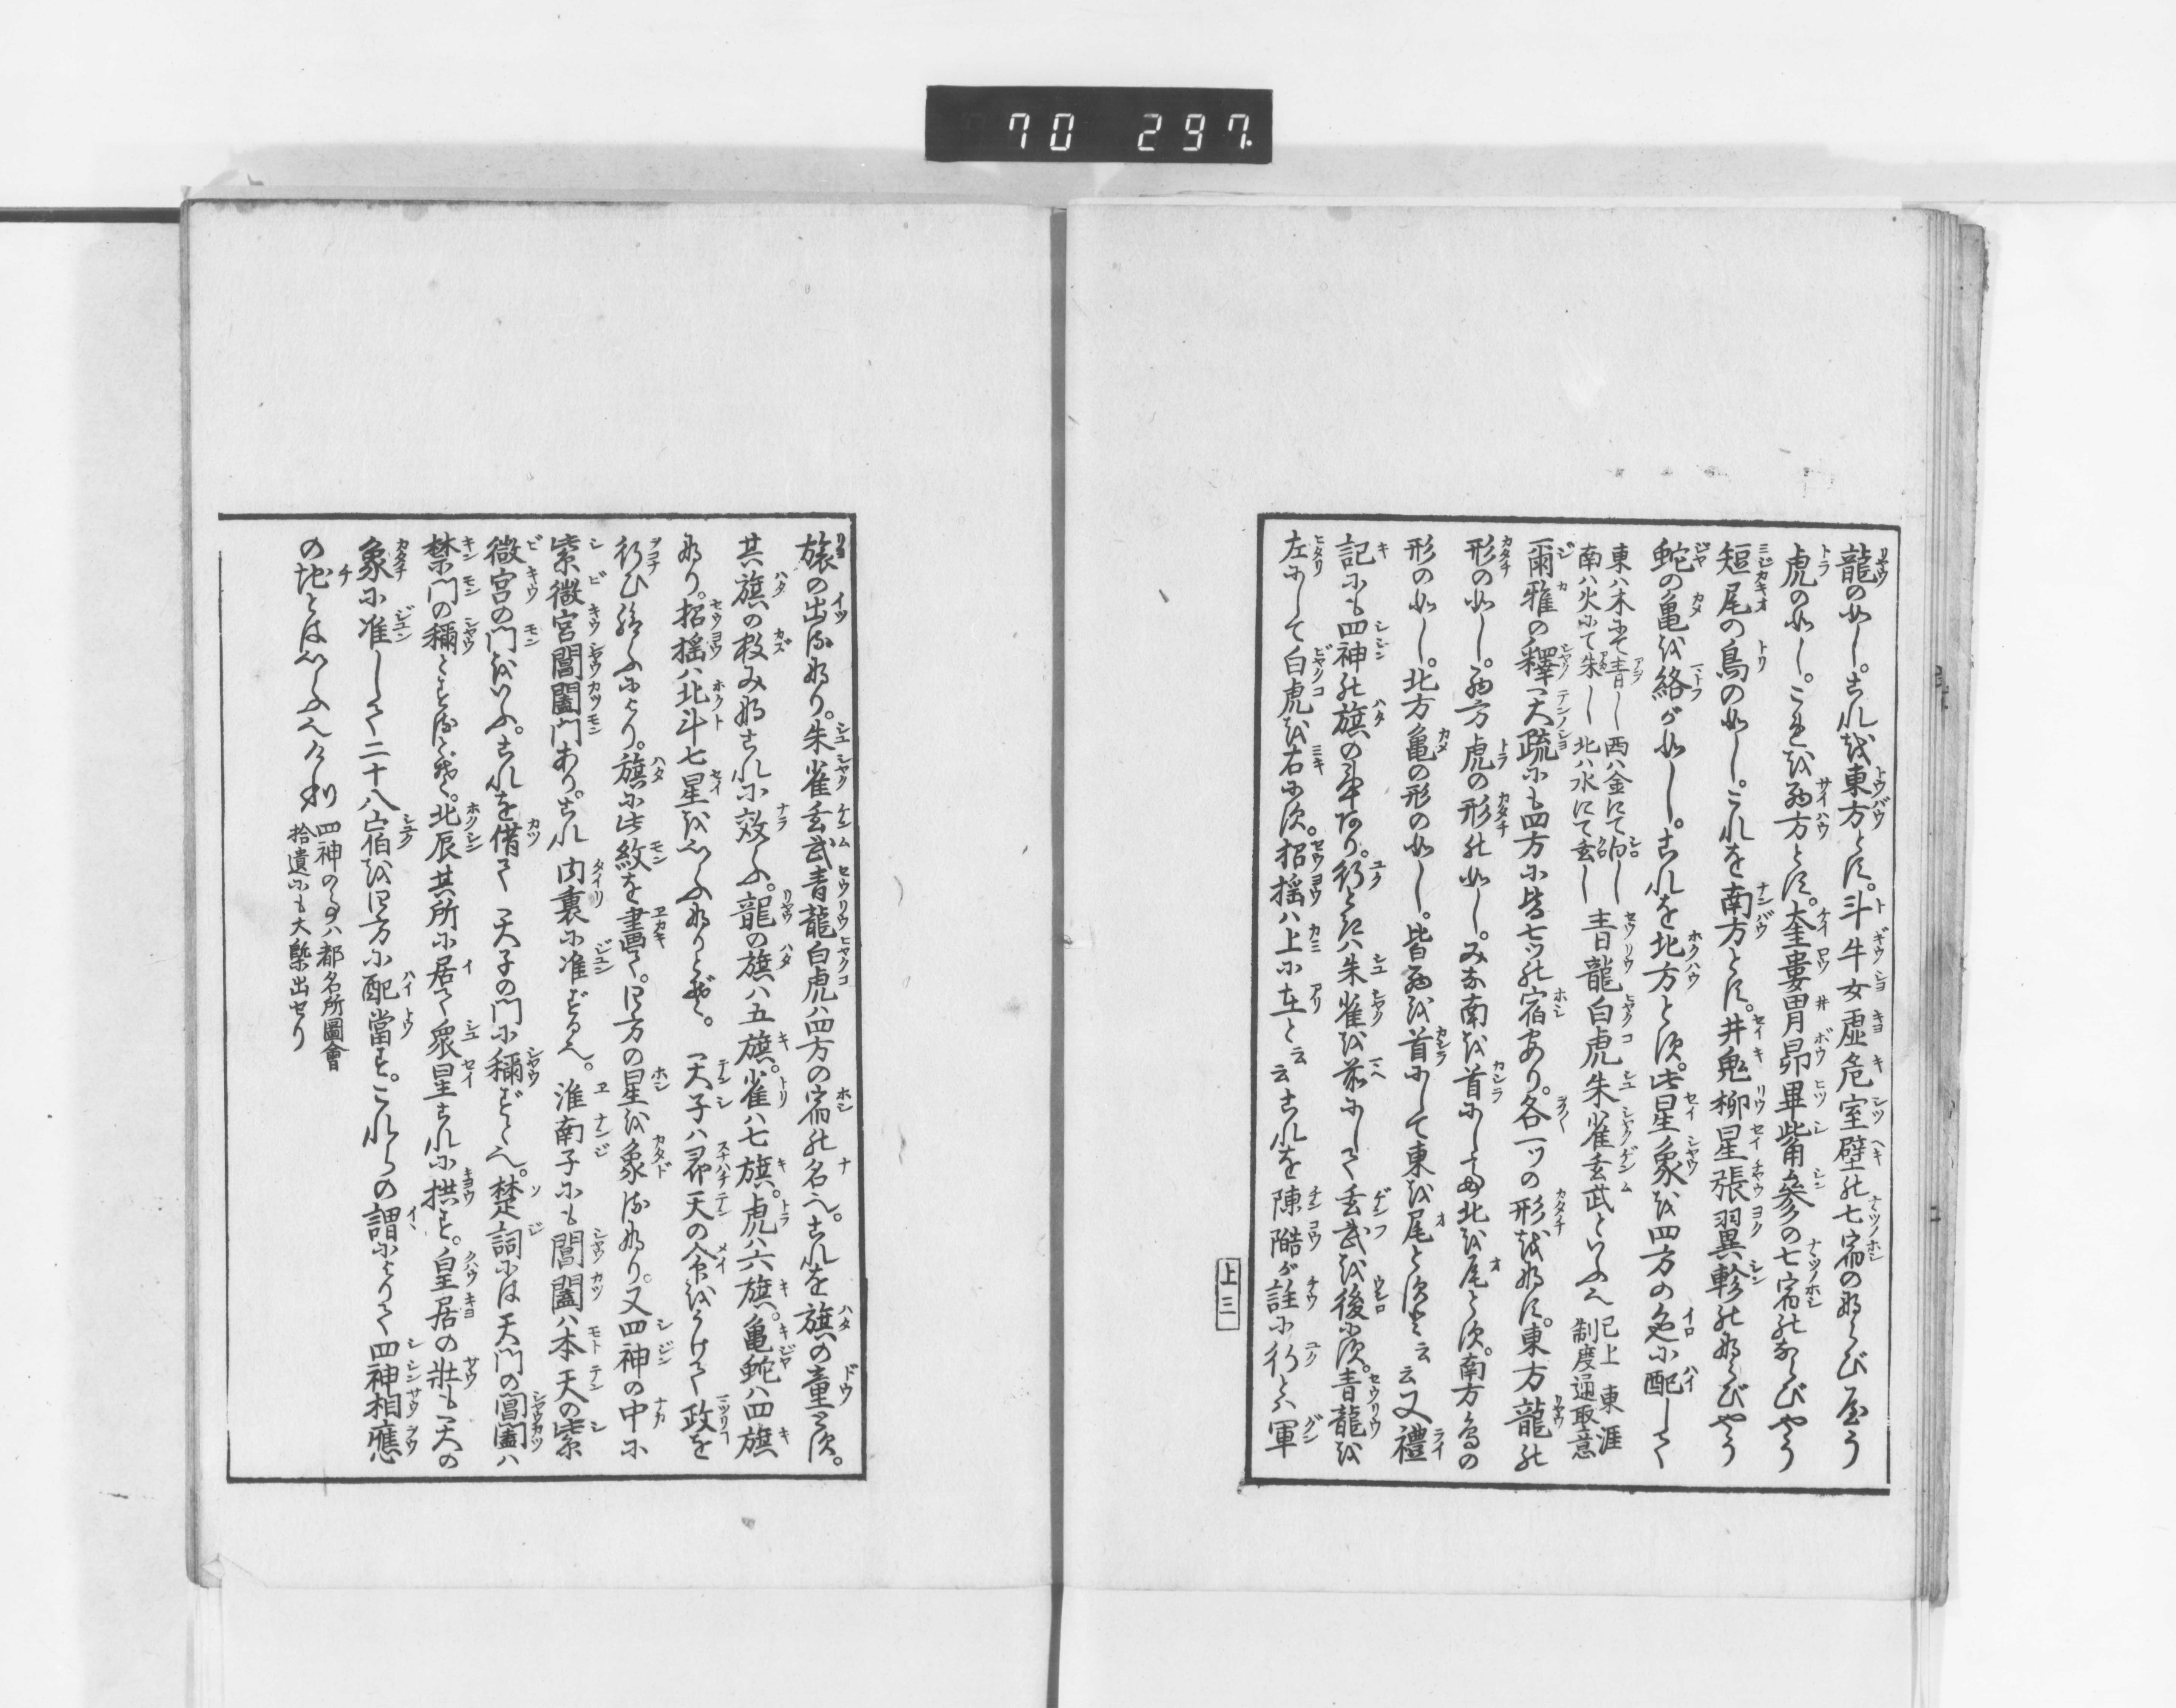 70 297
龍の如し。これを東方とす。斗牛女虚危室壁の七宿のならびやう
虎の如し。これを西方とす。奎婁胃昴畢觜参の七宿のならびやう
短尾の鳥の如し。これを南方とす。井鬼柳星張翼軫のならびやう
蛇の亀を絡が如し。これを北方とす。此星象を四方の色に配して
東ハ木にて青し 西ハ金にて白し
南ハ火にて朱し 北ハ水にて玄し
青龍白虎朱雀玄武といふ也
已上 東涯
制度通取意
爾雅の釋天疏にも四方に皆七ツの宿あり。各一ツの形をなす。東方龍の
形の如し。西方虎の形の如し。みな南を首にし北を尾とす。南方鳥の
形の如し。北方亀の形の如し。皆西を首にして東を尾とすと云云又禮
記にも四神の旗の事あり。行ときハ朱雀を前にして玄武を後にす。青龍を
左にして白虎を右にす。招揺ハ上に在と云云これを陳澔が註に行とハ軍
上三
旅の出るなり。朱雀玄武青龍白虎ハ四方の宿の名也。これを旗の章とす。
其旗の数みなこれに效ふ。龍の旗ハ五旗。雀ハ七旗。虎ハ六旗。亀蛇ハ四旗
なり。招揺ハ北斗七星をいふなりとぞ。天子ハ即天の命をうけて政を
行ひ給ふにより。旗に此紋を畫て。四方の星を象るなり。又四神の中に
紫微宮閶闔門あり。これ内裏に准ずる也。淮南子にも閶闔ハ本天の紫
微宮の門をいふ。これを借て天子の門に稱ずと也。楚詞には天門の閶闔ハ
禁門の稱とするとぞ。北辰其所に居て衆星これに拱す。皇居の壮も天の
象に准して二十八宿を四方に配當す。これらの謂によりて四神相應
の地とはいふ也
四神の事ハ都名所圖會
拾遺にも大槩出せり